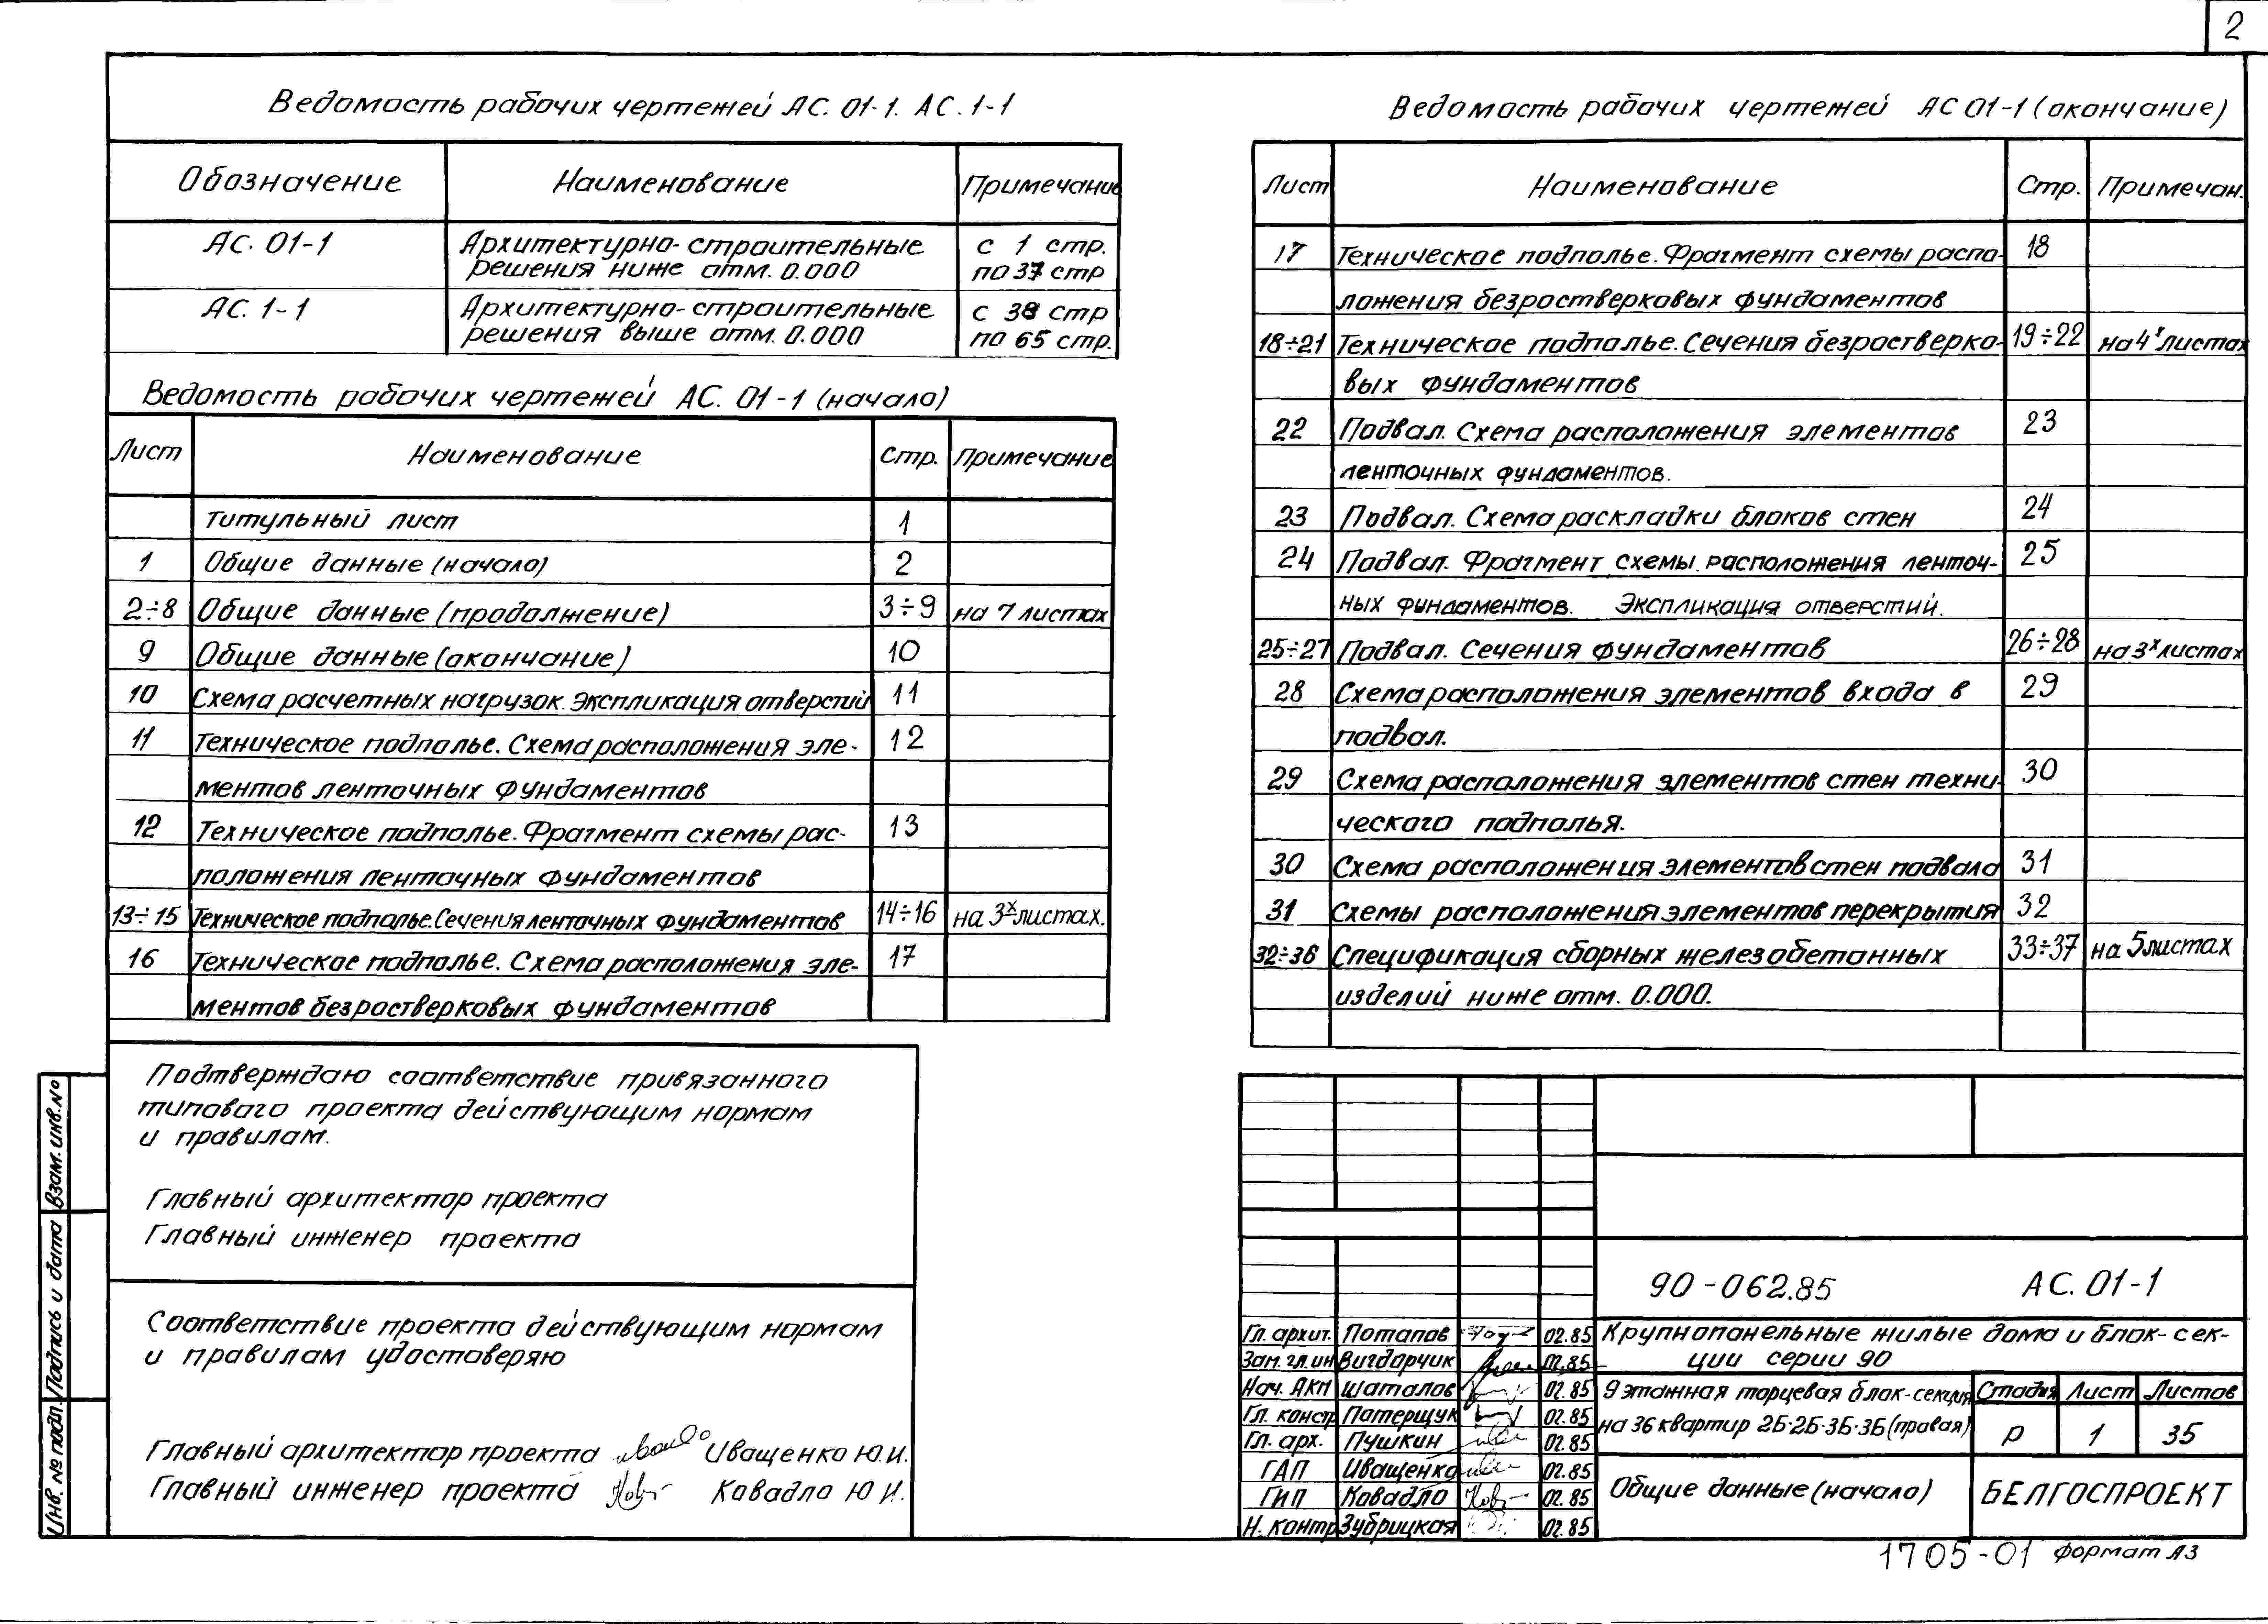 2
Ведомость рабочих чертежей АС. 01-1. АС. 1-1
Обозначение Наименование Примечание
АС. 01-1 Архитектурно-строительные с 1 стр.
решения ниже отм. 0.000 по 37 стр
АС. 1-1 Архитектурно-строительные с 38 стр
решения выше отм. 0.000 по 65 стр.
Ведомость рабочих чертежей АС. 01-1 (начало)
Лист Наименование Стр. Примечание
Титульный лист 1
1 Общие данные (начало) 2
2÷8 Общие данные (продолжение) 3÷9 на 7 листах
9 Общие данные (окончание) 10
10 Схема расчетных нагрузок. Экспликация отверстий 11
11 Техническое подполье. Схема расположения эле- 12
ментов ленточных фундаментов
12 Техническое подполье. Фрагмент схемы рас- 13
положения ленточных фундаментов
13÷15 Техническое подполье. Сечения ленточных фундаментов 14÷16 на 3х листах.
16 Техническое подполье. Схема расположения эле- 17
ментов безростверковых фундаментов
Ведомость рабочих чертежей АС 01-1 (окончание)
Лист Наименование Стр. Примечан.
17 Техническое подполье. Фрагмент схемы распо- 18
ложения безростверковых фундаментов
18÷21 Техническое подполье. Сечения безростверко- 19÷22 на 4х листах
вых фундаментов
22 Подвал. Схема расположения элементов 23
ленточных фундаментов.
23 Подвал. Схема раскладки блоков стен 24
24 Подвал. Фрагмент схемы расположения ленточ- 25
ных фундаментов. Экспликация отверстий.
25÷27 Подвал. Сечения фундаментов 26÷28 на 3х листах
28 Схема расположения элементов входа в 29
подвал.
29 Схема расположения элементов стен техни- 30
ческого подполья.
30 Схема расположения элементов стен подвала 31
31 Схемы расположения элементов перекрытия 32
32÷36 Спецификация сборных железобетонных 33÷37 на 5 листах
изделий ниже отм. 0.000.
Подтверждаю соответствие привязанного
типового проекта действующим нормам
и правилам.
Главный архитектор проекта
Главный инженер проекта
Соответствие проекта действующим нормам
и правилам удостоверяю
Главный архитектор проекта Иващенко Ю.И.
Главный инженер проекта Ковадло Ю И.
Взам. инв. №
Подпись и дата
Инв. № подл.
90-062.85 АС. 01-1
Гл. архит. Потапов 02.85
Зам. гл. ин Вигдорчик 02.85
Нач. АКМ Шаталов 02.85
Гл. констр Патерщук 02.85
Гл. арх. Пушкин 02.85
ГАП Иващенко 02.85
ГИП Ковадло 02.85
Н. контр Зубрицкая 02.85
Крупнопанельные жилые дома и блок-сек-
ции серии 90
9 этажная торцевая блок-секция
на 36 квартир 2Б-2Б-3Б-3Б (правая)
Стадия Лист Листов
Р 1 35
Общие данные (начало)
БЕЛГОСПРОЕКТ
1705-01 Формат А3